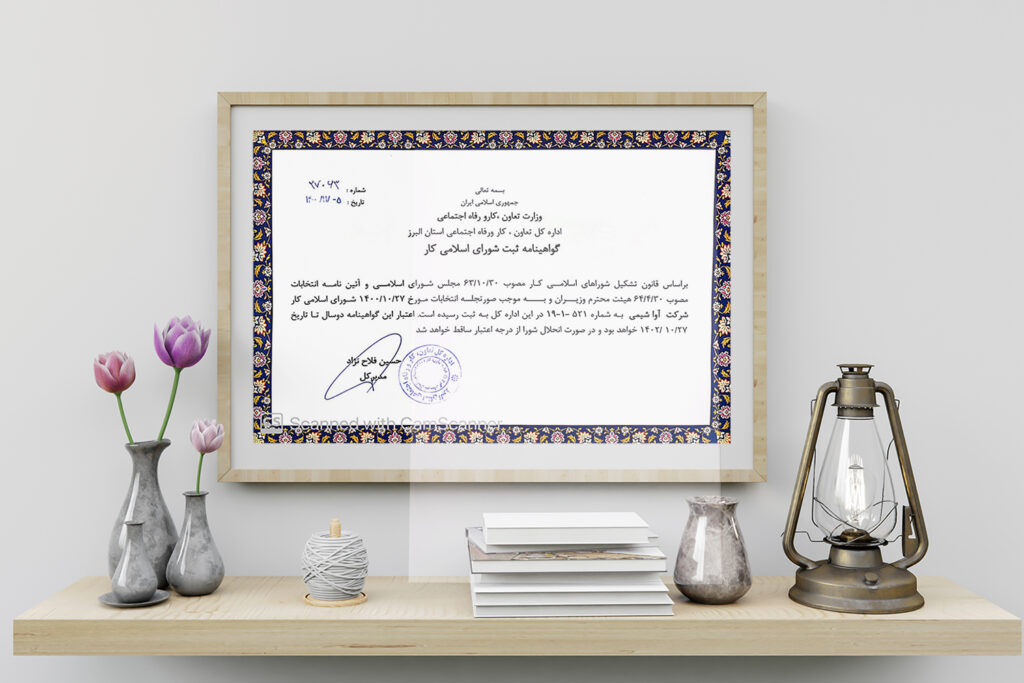 بسمه تعالی
جمهوری اسلامی ایران
وزارت تعاون ،کارو رفاه اجتماعی
اداره کل تعاون ، کار ورفاه اجتماعی استان البرز
گواهینامه ثبت شورای اسلامی کار
شماره :
تاریخ :
براساس قانون تشکیل شوراهای اسلامی کار مصوب ۶۳/۱۰/۳۰ مجلس شورای اسلامی و آئین نامه انتخابات
مصوب ۶۴/۴/۳۰ هیئت محترم وزیران و به موجب صورتجلسه انتخابات مورخ ۱۴۰۰/۱۰/۲۷ شورای اسلامی کار
شرکت آوا شیمی به شماره ۵۲۱ -۱-۱۹ در این اداره کل به ثبت رسیده است. اعتبار این گواهینامه دوسال تا تاریخ
۱۴۰۲/ ۱۰/۲۷ خواهد بود و در صورت انحلال شورا از درجه اعتبار ساقط خواهد شد
حسین فلاح نژاد
مدیرکل
CS Scanned with CamScanner